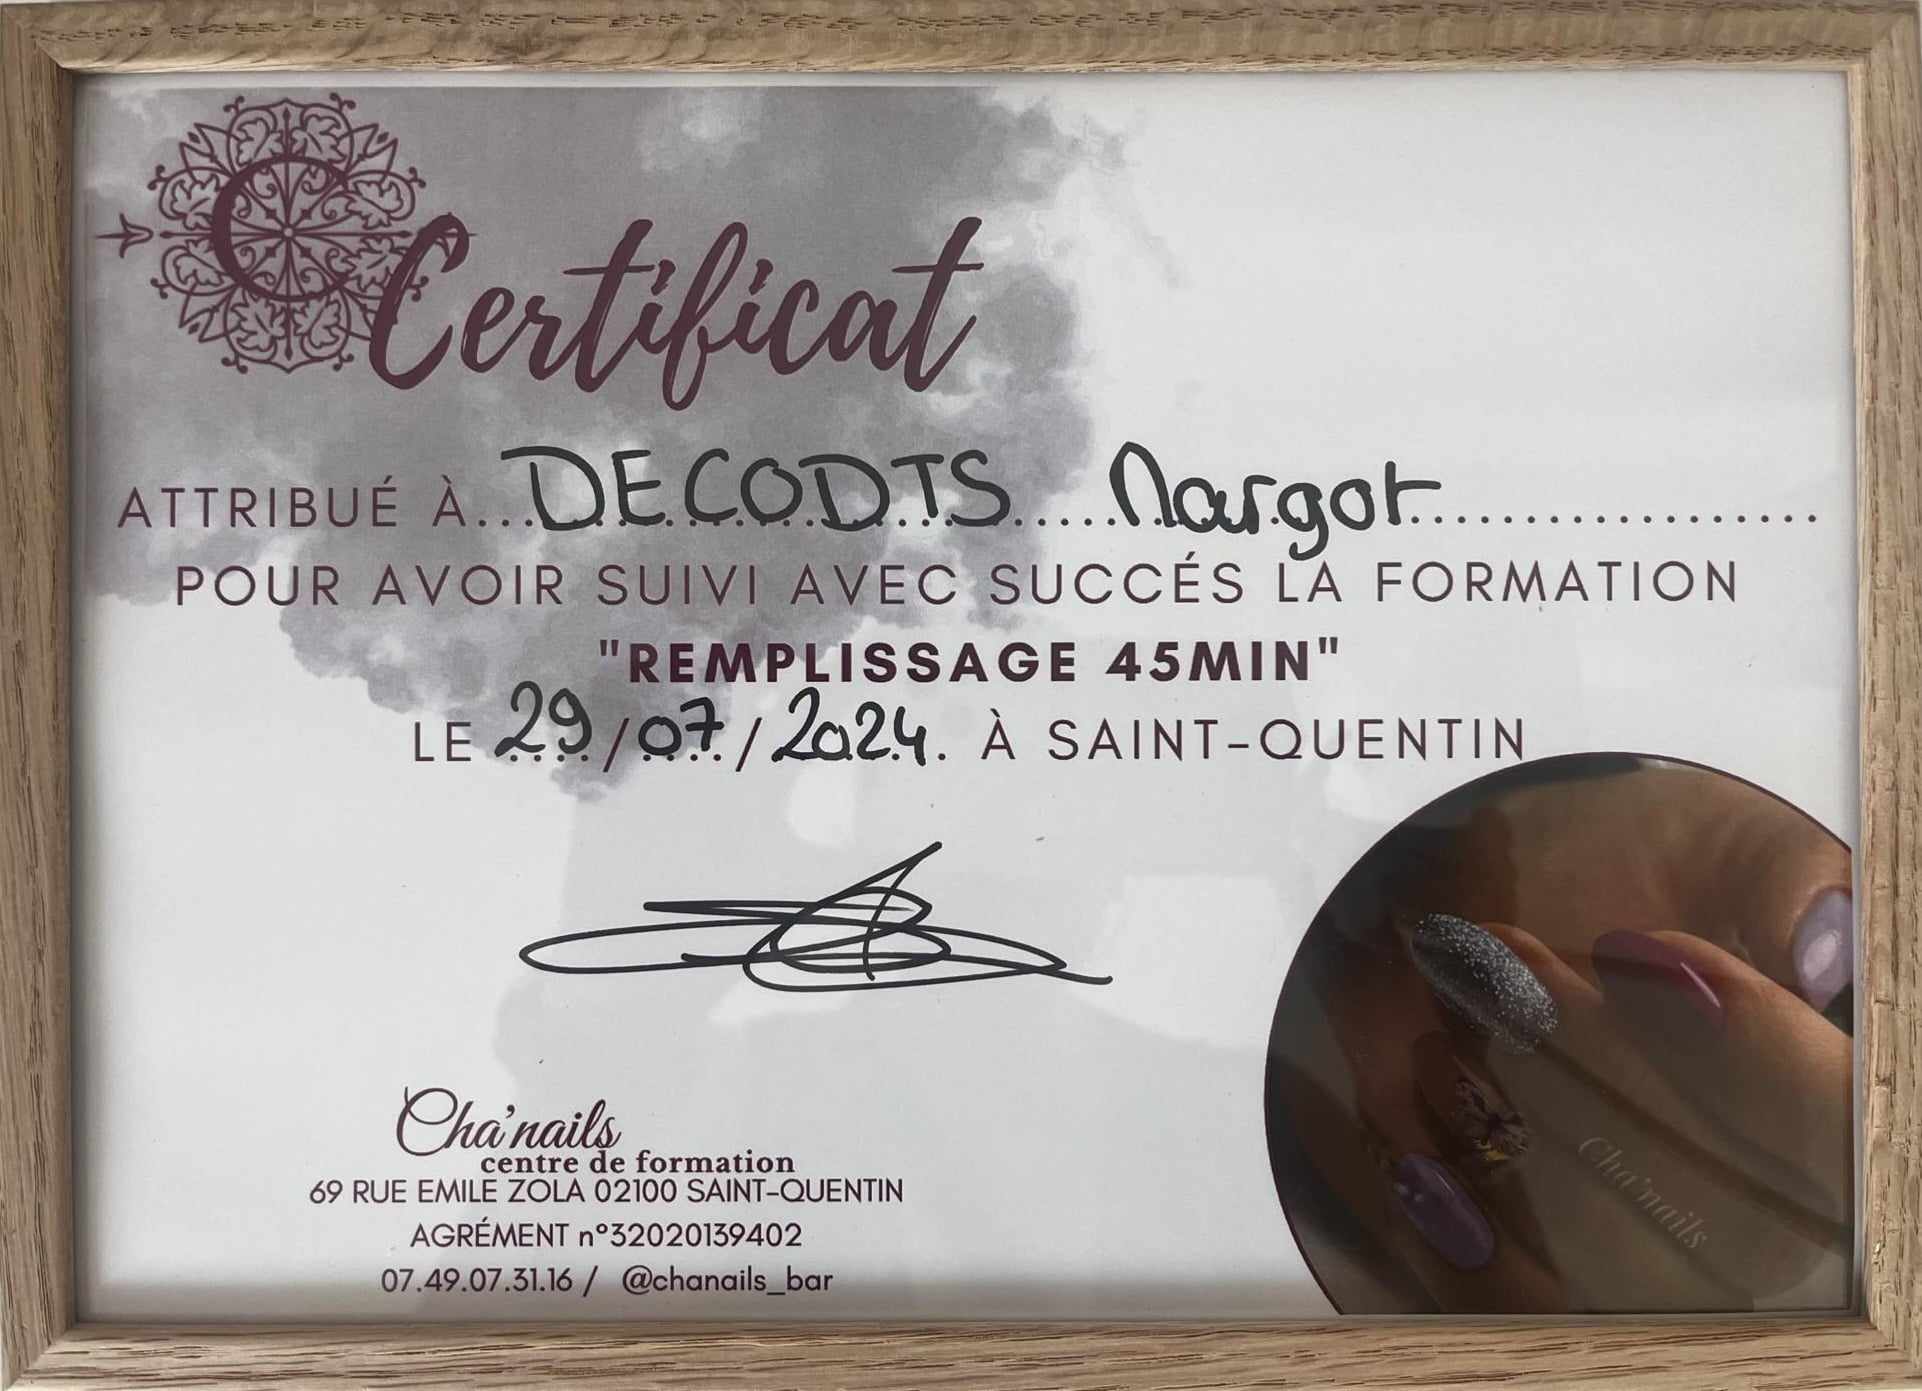 C
Certificat
ATTRIBUÉ À...DECODTS Margot
POUR AVOIR SUIVI AVEC SUCCÉS LA FORMATION
"REMPLISSAGE 45MIN"
LE 29/07/2024. À SAINT-QUENTIN
Cha'nails
centre de formation
69 RUE EMILE ZOLA 02100 SAINT-QUENTIN
AGRÉMENT n°32020139402
07.49.07.31.16 / @chanails_bar
Cha'nails